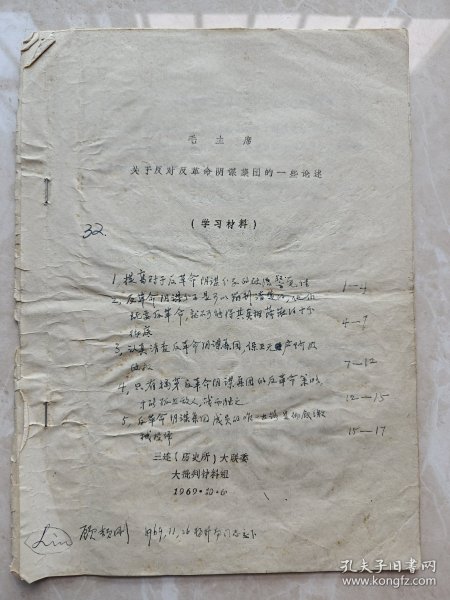 毛主席
关于反对反革命阴谋集团的一些论述
(学习材料)
32.
1. 提高对于反革命阴谋分子的政治警觉性 1—4
2. 反革命阴谋分子
反革命, 就不可能 4—7
彻底
3. 认真清查反革命阴谋集团, 保卫无产阶级
政权 7—12
4, 只有揭穿反革命阴谋集团的反革命策略,
才能孤立敌人, 12—15
5. 反革命阴谋集团成员的唯一出路是彻底缴
械投降 15—17
三连(历史所)大联委
大批判材料组
1969·10·6
Liu 顾颉刚 1969,11,26
孔夫子旧书网
www.kongfz.com